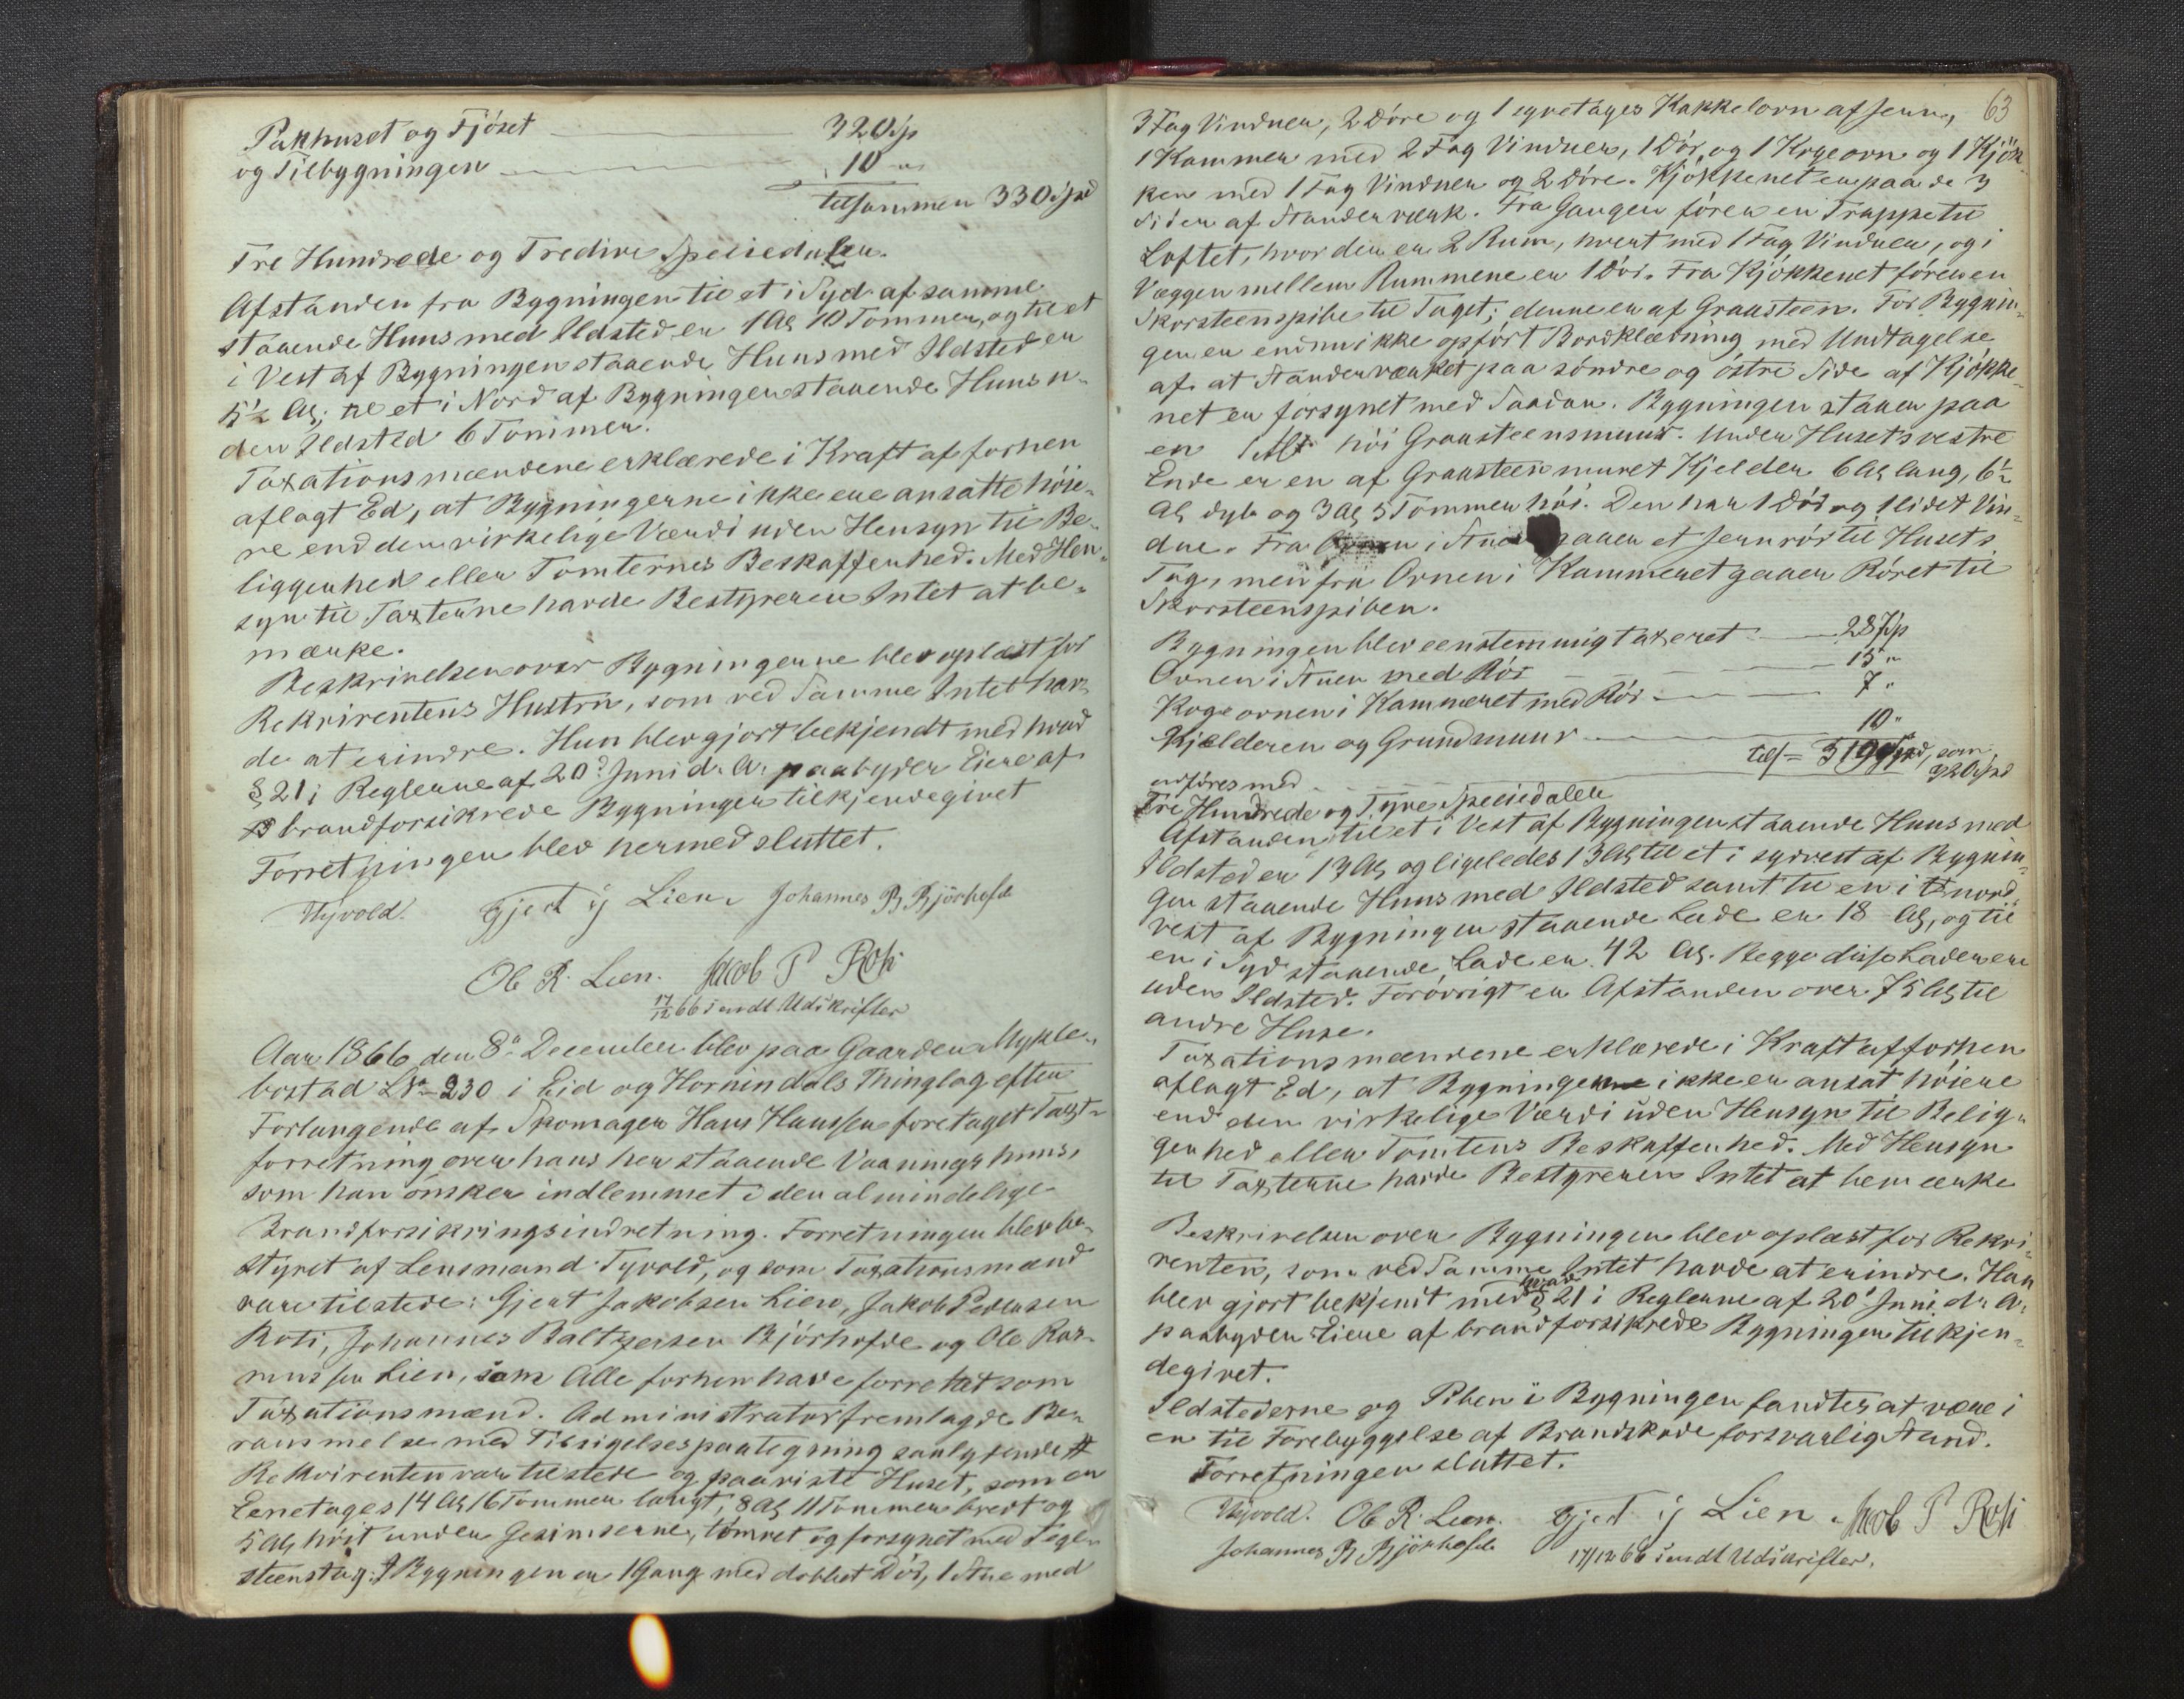 Pakhuset og Fjöset 320 Sp
og Tilbygningen 10 "
tilsammen 330 Spd
Tre Hundrede og Tredive Speciedaler.
Afstanden fra Bygningen til et i Syd af samme
staaende Huus med Ildsted er 1 Al 10 Tommer, og til et
i Vest af Bygningen staaende Huus med Ildsted er
5½ Al; til et i Nord af Bygningen staaende Huus u-
den Ildsted 6 Tommer.
Taxationsmændene erklærede i Kraft af forhen
aflagt Ed, at Bygningerne ikke ere ansatte høie-
re end den virkelige Værdi uden Hensyn til Be-
liggenhed eller Tomternes Beskaffenhed. Med Hen-
syn til Taxterne havde Bestyreren Intet at be-
mærke.
Beskrivelsen over Bygningerne blev oplæst for
Rekvirentens Hustru, som ved Samme Intet hav-
de at erindre. Hun blev gjort bekjendt med hvad
§ 21 i Reglerne af 20de Juni d. A. paabyder Eiere af
brandforsikrede Bygninger tilkjendegivet
Forretningen blev hermed sluttet.
Thjvold. Gjert J Lien. Johannes B Bjørhofde
Ole R. Lien. Jacob P Roti
17/12 66 sendt Udskrifter
Aar 1866 den 8de December blev paa Gaarden Mykle-
bostad LNo 230 i Eid og Hornindals Thinglag efter
Forlangende af Skomager Hans Hanssen foretaget Taxt-
forretning over hans her staaende Vaaningshuus,
som han ønsker indlemmet i den almindelige
Brandforsikringsindretning. Forretningen blev be-
styret af Lensmand Tyvold, og som Taxationsmænd
vare tilstede: Gjert Jakobsen Lien, Jakob Pedersen
Roti, Johannes Baltzersen Bjørhofde og Ole Ras-
mussen Lien, som Alle forhen have forrettet som
Taxationsmænd. Administrator fremlagde Be-
rammelse med Tilsigelsespaategning saalydende #
Rekvirenten var tilstede og paaviste Huset, som er
Eenetages 14 Al 16 Tommer langt, 8 Al 11 Tommer bredt og
5 Al høit under Gesimserne, tømret og forsynet med Tegl-
steenstag. I Bygningen er 1 Gang med dobbet Dör, 1 Stue med
63
3 Fag Vinduer, 2 Döre og 1 Kakkelovn af Jern,
1 Kammer med 2 Fag Vinduer, 1 Dör og 1 Kogeovn og 1 Kjök-
ken med 1 Fag Vinduer og 2 Döre. Kjökkenet er paa de 3
Sider af Standerværk. Fra Gangen förer en Trappe til
Loftet, hvor der er 2 Rum, hvert med 1 Fag Vinduer, og i
Væggen mellem Rummene er 1 Dör. Fra Kjökkenet förer en
Skorsteenspibe til Taget; denne er af Graasteen. For Bygnin-
gen er endnu ikke opfört Bordklædning med Undtagelse
af at Standerværket paa söndre og östre Side af Kjökke-
net er forsynet med Saadan. Bygningen staaer paa
en 1 Al höi Graasteensmuur. Under Husets vestre
Ende er en af Graasteen muret Kjelder 6 Al lang, 6½
Al dyb og 3 Al 5 Tommer höi. Den har 1 Dör og 1 lidet Vin-
due. Fra Ovnen i Stuen gaaer et Jernrör til Husets
Tag, men fra Ovnen i Kammeret gaaer Röret til
Skorsteenspiben.
Bygningen blev eenstemmigt taxeret 287 Sp
Ovnen i Stuen med Rör 15 "
Kogeovnen i Kammeret med Rör 7 "
Kjælderen og Grundmuur 10 "
tils = 319 Spd, som
udföres med 320 Spd
Tre Hundrede og Tyve Speciedaler
Afstanden til et i Vest af Bygningen staaende Huus med
Ildsted er 13 Al og ligeledes 13 Al til et i sydvest af Bygnin-
gen staaende Huus med Ildsted samt til en i nord-
vest af Bygningen staaende Lade er 18 Al, og til
en i Syd staaende Lade er 42 Al. Begge disse Lader ere
uden Ildsted. Forövrigt er Afstanden over 75 Al til
andre Huse.
Taxationsmændene erklærede i Kraft af forhen
aflagt Ed, at Bygningen ikke er ansat höiere
end den virkelige Værdi uden Hensyn til Belig-
genhed eller Tomtens Beskaffenhed. Med Hensyn
til Taxterne havde Bestyreren Intet at bemærke
Beskrivelsen over Bygningen blev oplæst for Rekvi-
renten, som ved Samme Intet havde at erindre. Han
blev gjort bekjendt med hvad § 21 i Reglerne af 20de Juni d. A.
paabyder Eiere af brandforsikrede Bygninger tilkjen-
degivet.
Ildstederne og Piben i Bygningen fandtes at være i
en til Forebyggelse af Brandskade forsvarlig Stand.
Forretningen sluttet.
Thjvold. Ole R. Lien. Gjert J Lien. Jacob P Roti
Johannes B Bjørhofde 17/12 66 sendt Udskrifter.